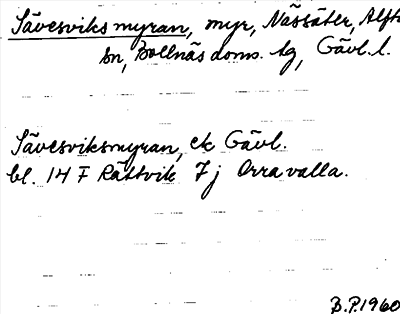 Sävesviksmyran, myr, Nässäter, Alfta
sn, Bollnäs doms. tg, Gävl. l.
Sävesviksmyran, ek Gävl.
bl. 14 F Rättvik 7 j Orravalla.
B.P. 1960